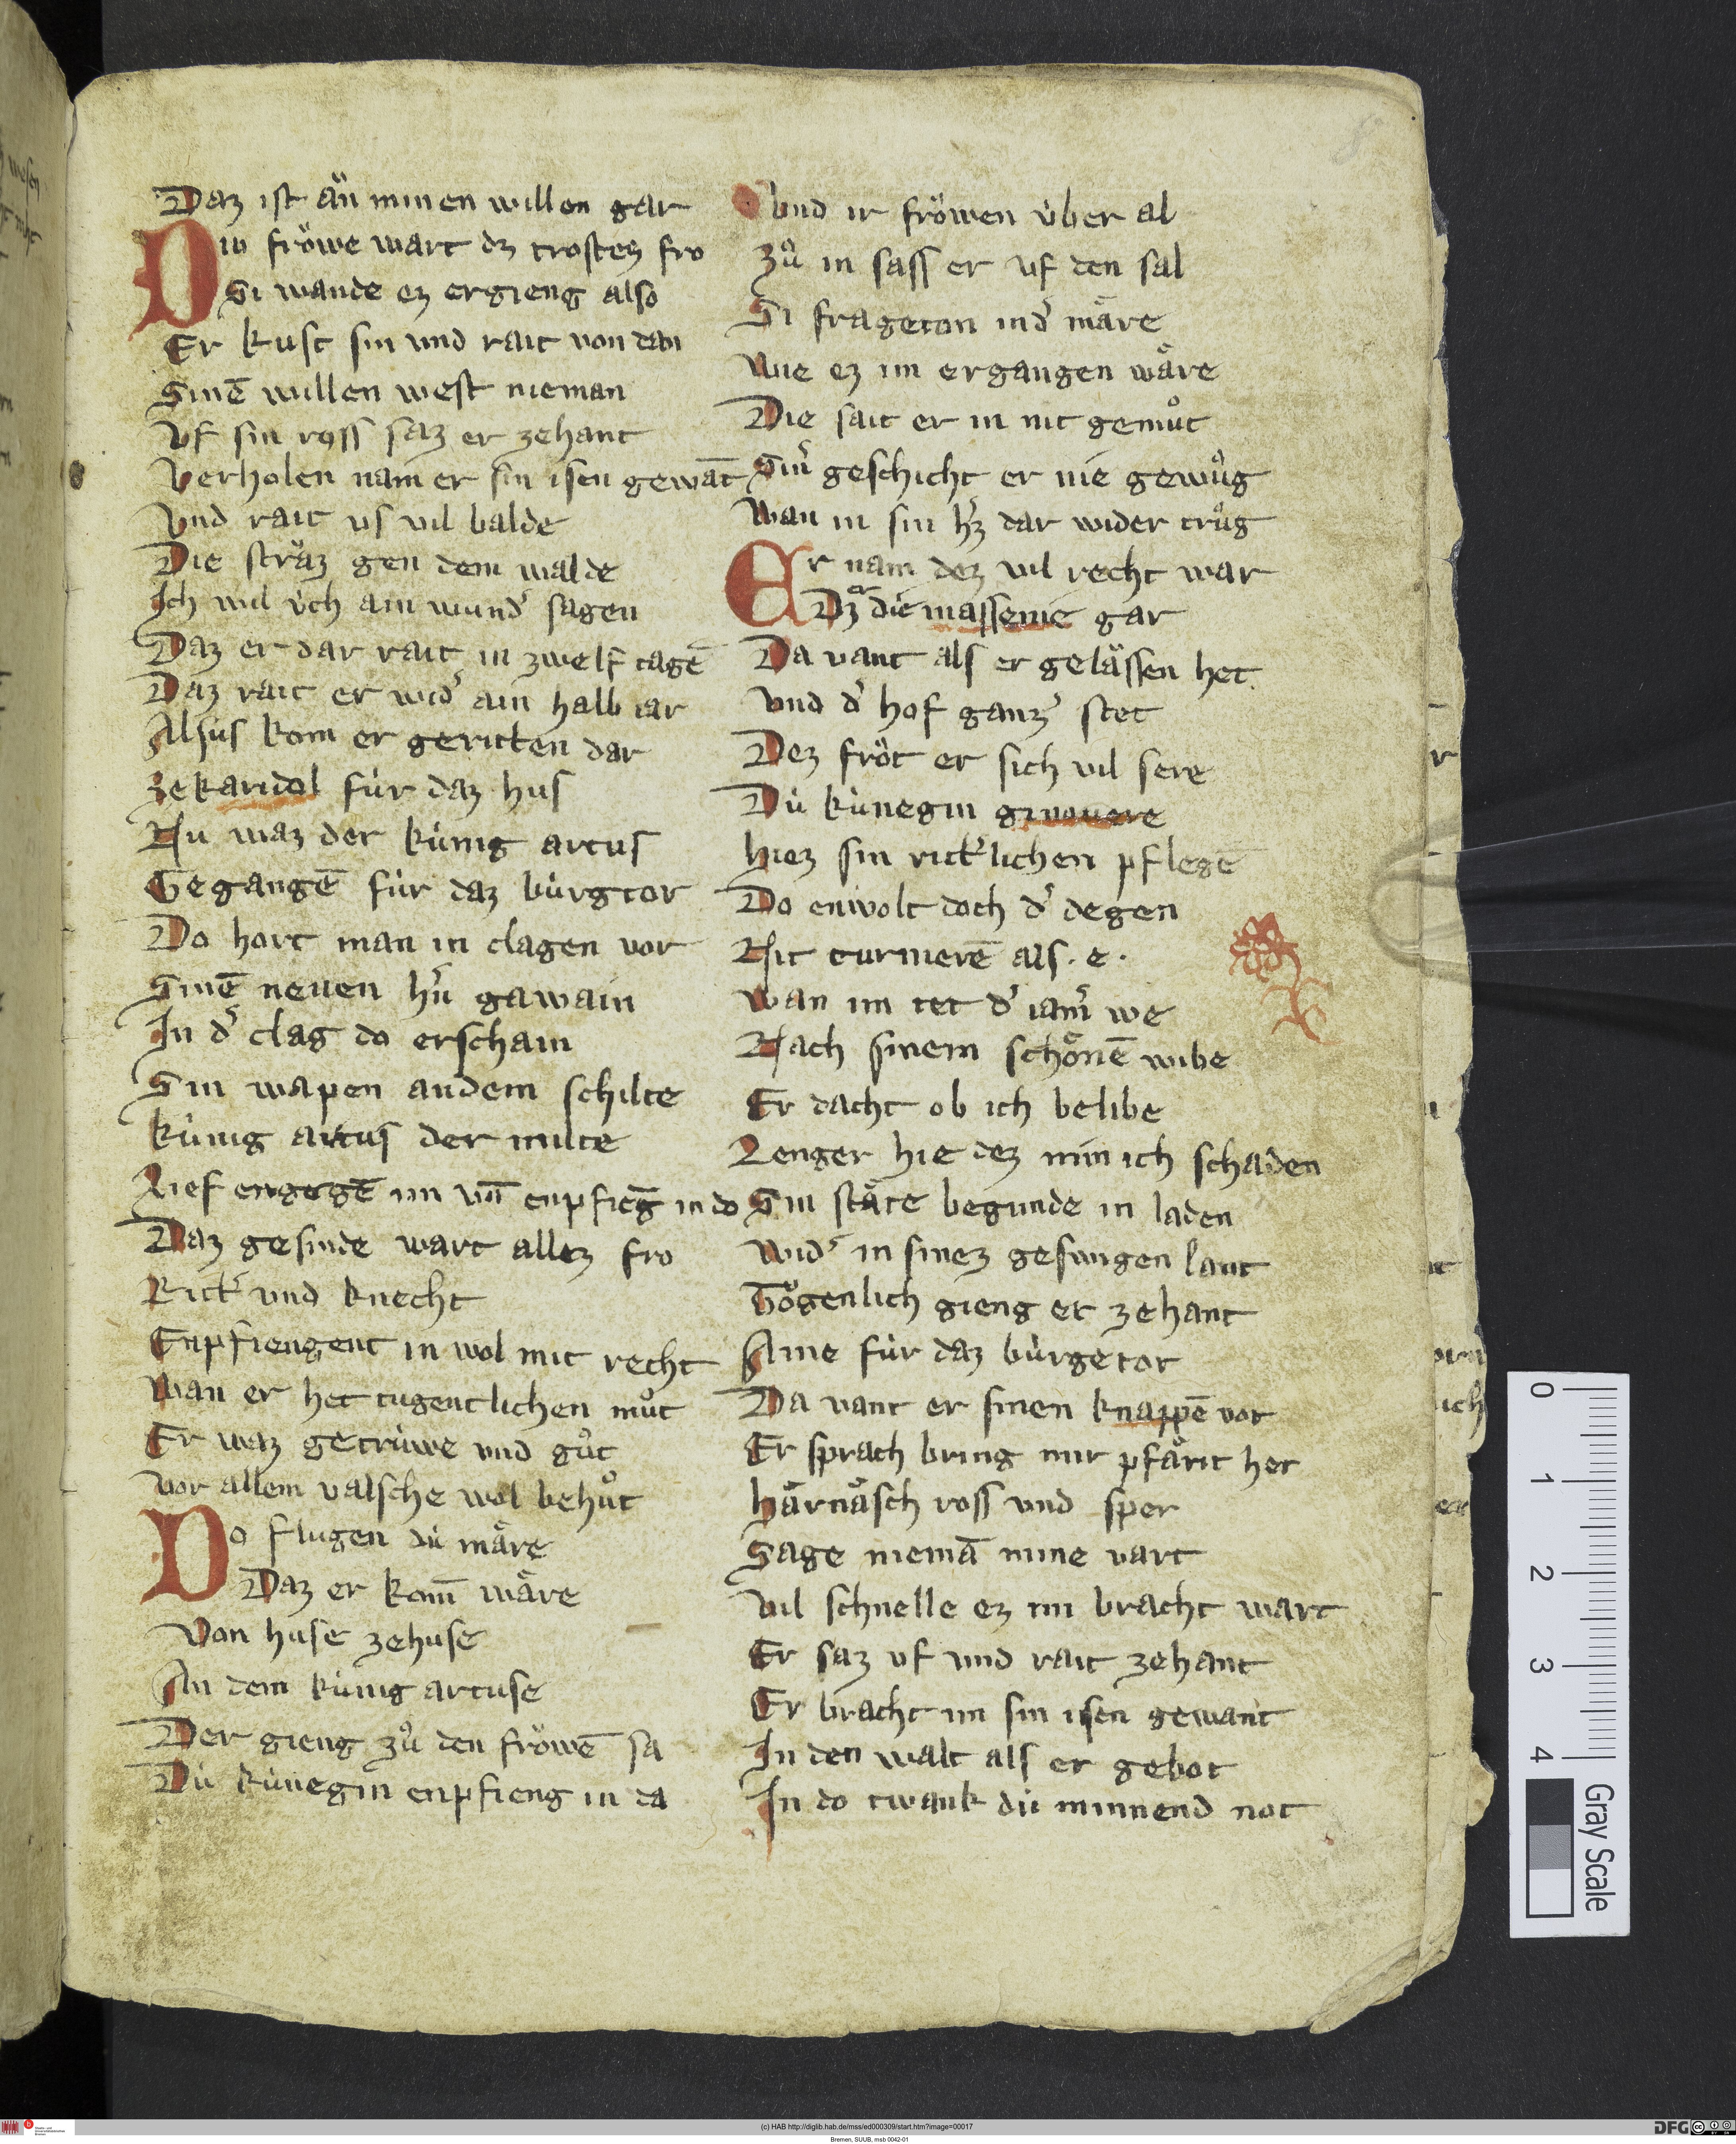 Daz ist aͮn minen willen gar
Diu fröwe wart dz trostez fro
Si wande ez ergieng also
Er kust sin und rait von dan
Sinē willen west nieman
Vf sin ross saz er zehant
Verholen nam er sin isen gewāt
Vnd rait us vil balde
Die straͮz gen dem walde
Ich wil ùch ain wundͬ sagen
Daz er dar rait in zwelf tagē
Daz rait er widͬ ain halb iar
Alsus kom er geritten dar
zekaridol fùr daz hus
Nu waz der kùnig artus
Gegangē fùr daz bùrgtor
Do hort man in clagen vor
Sinē neuen hͬn gawain
In dͬ clag do erschain
Sin wapen an dem schilte
kùnig artus der milte
Lief engegē im vn̄ enpfieḡ in do
Daz gesinde wart allez fro
Rittͬ vnd knecht
Enpfiengent in wol mit recht
Wan er het tugentlichen můt
Er waz getrùwe vnd gůt
Vor allem valsche wol behůt
Do flugen dù märe
Daz er kom̄ wäre
Von huse zehuse
An dem kùnig artuse
Der gieng zů den fröwē sa
Dù kùnegin enpfieng in da
Vnd ir fröwen ùber al
Zů in sass er uf den sal
Si frageton in dͬ märe
Wie ez im ergangen wäre
Die sait er in nit genůt
Sinͬ geschicht er nie gewůg
Wan in sin hͬz dar wider trůg
Er nam dez vil recht war
Dz er die massenie gar
Da vant als er gelässen het
Vnd dͬ hof ganzͬ stet
Dez fröt er sich vil sere
Dù kùnegin ginouere
hiez sin rittͬlichen pflegē
Do enwolt doch dͬ degen
Nit turnierē als . e .
Wan im tet dͬ iamͬ we
Nach sinem schönē wibe
Er dacht ob ich belibe
Lenger hie dez nim ich schaden
Sin stäte begunde in laden
Widͬ in sinez geswigen lant
Tögenlich gieng er zehant
Aine fùr daz bùrgetor
Da vant er sinen knappē vor
Er sprach bring mir pfärit her
härnäsch ross vnd sper
Sage niemā mine vart
Vil schnelle ez im bracht wart
Er saz uf und rait zehant
Er bracht im sin isen gewant
In den walt als er gebot
In do twank dù minnend not
0
1
2
3
4
Gray Scale
(c) HAB http://diglib.hab.de/mss/ed000309/start.htm?image=00017
Bremen, SUUB, msb 0042-01
DFG